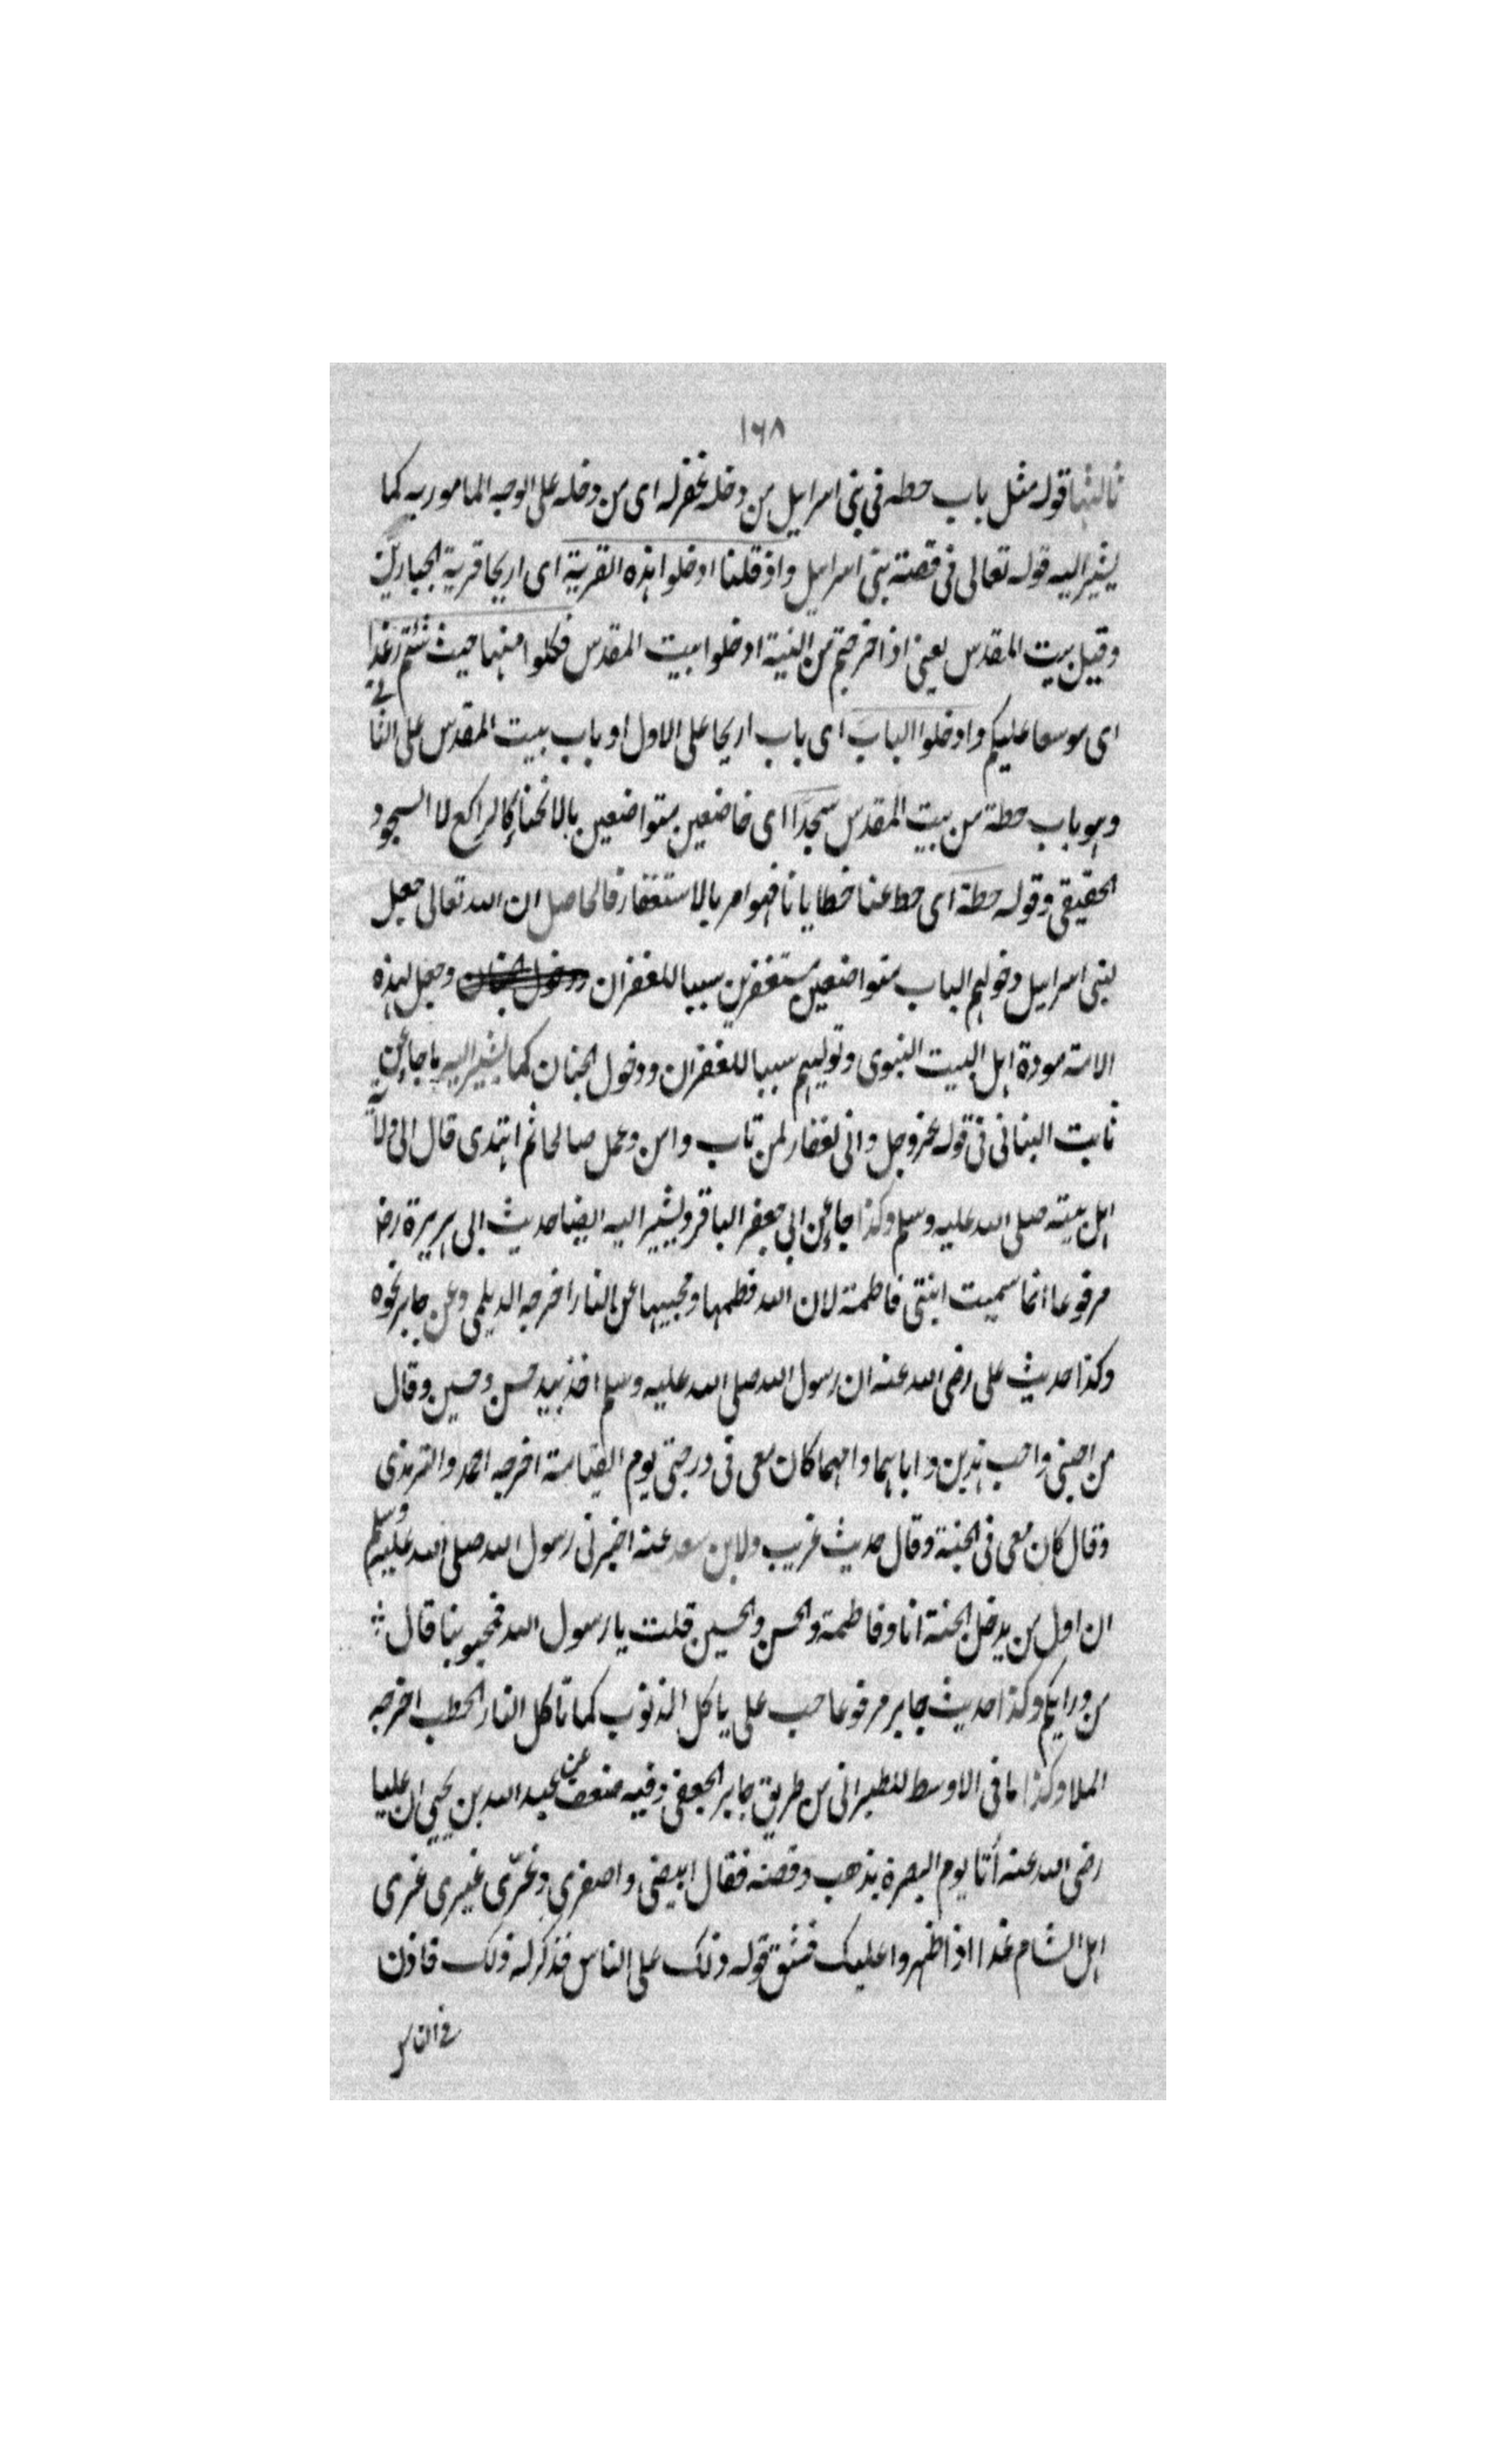 ١٦٨
ثالثها قوله مثل باب حطه في بني اسراييل من دخله غفر له اى من دخله على الوجه المامور به كما
يشير اليه قوله تعالى في قصة بنى اسراييل واذ قلنا ادخلوا هذه القرية اى اريحا قرية الجبارين
وقيل بيت المقدس يعني اذا خرجتم من التيه ادخلوا بيت المقدس فكلوا منها حيث شئتم رغدا
اى موسعا عليكم وادخلوا الباب اى باب اريحا على الاول او باب بيت المقدس على الثاني
وهو باب حطة من بيت المقدس سجدا اى خاضعين متواضعين بالانحناء كالراكع لا السجود
الحقيقي وقوله حطة اى حط عنا خطايانا فهو امر بالاستغفار فالحاصل ان الله تعالى جعل
لبنى اسراييل دخولهم الباب متواضعين مستغفرين سببا للغفران ودخول الجنان وجعل لهذه
الامة مودة اهل البيت النبوى وتوليهم سببا للغفران ودخول الجنان كما يشير اليه ما جاء عن
ثابت البناني في قوله عز وجل واني لغفار لمن تاب وامن وعمل صالحا ثم اهتدى قال الى ولاية
اهل بيته صلى الله عليه وسلم وكذا جاء عن ابي جعفر الباقر ويشير اليه ايضا حديث ابى هريرة رض
مرفوعا انما سميت ابنتي فاطمة لان الله فطمها ومحبيها عن النار اخرجه الديلمي وعن جابر نحوه
وكذا حديث على رضى الله عنه ان رسول الله صلى الله عليه وسلم اخذ بيد حسن وحسين وقال
من احبني واحب هذين واباهما وامهما كان معى في درجتي يوم القيامة اخرجه احمد والترمذى
وقال كان معى في الجنة وقال حديث غريب ولابن سعد عنه اخبرني رسول الله صلى الله عليه وسلم
ان اول من يدخل الجنة انا وفاطمة والحسن والحسين قلت يا رسول الله فمحبونا قال
من ورايكم وكذا حديث جابر مرفوعا حب على ياكل الذنوب كما تاكل النار الحطب اخرجه
الملا وكذا ما في الاوسط للطبرانى من طريق جابر الجعفي وفيه ضعف عن عبد الله بن يحيى ان عليا
رضى الله عنه أتا يوم البصرة بذهب وفضة فقال ابيضي واصفري وغرّى غيرى غرى
اهل الشام غدا اذا ظهروا عليك فشق قوله ذلك على الناس فذكر له ذلك فاذن
في الناس